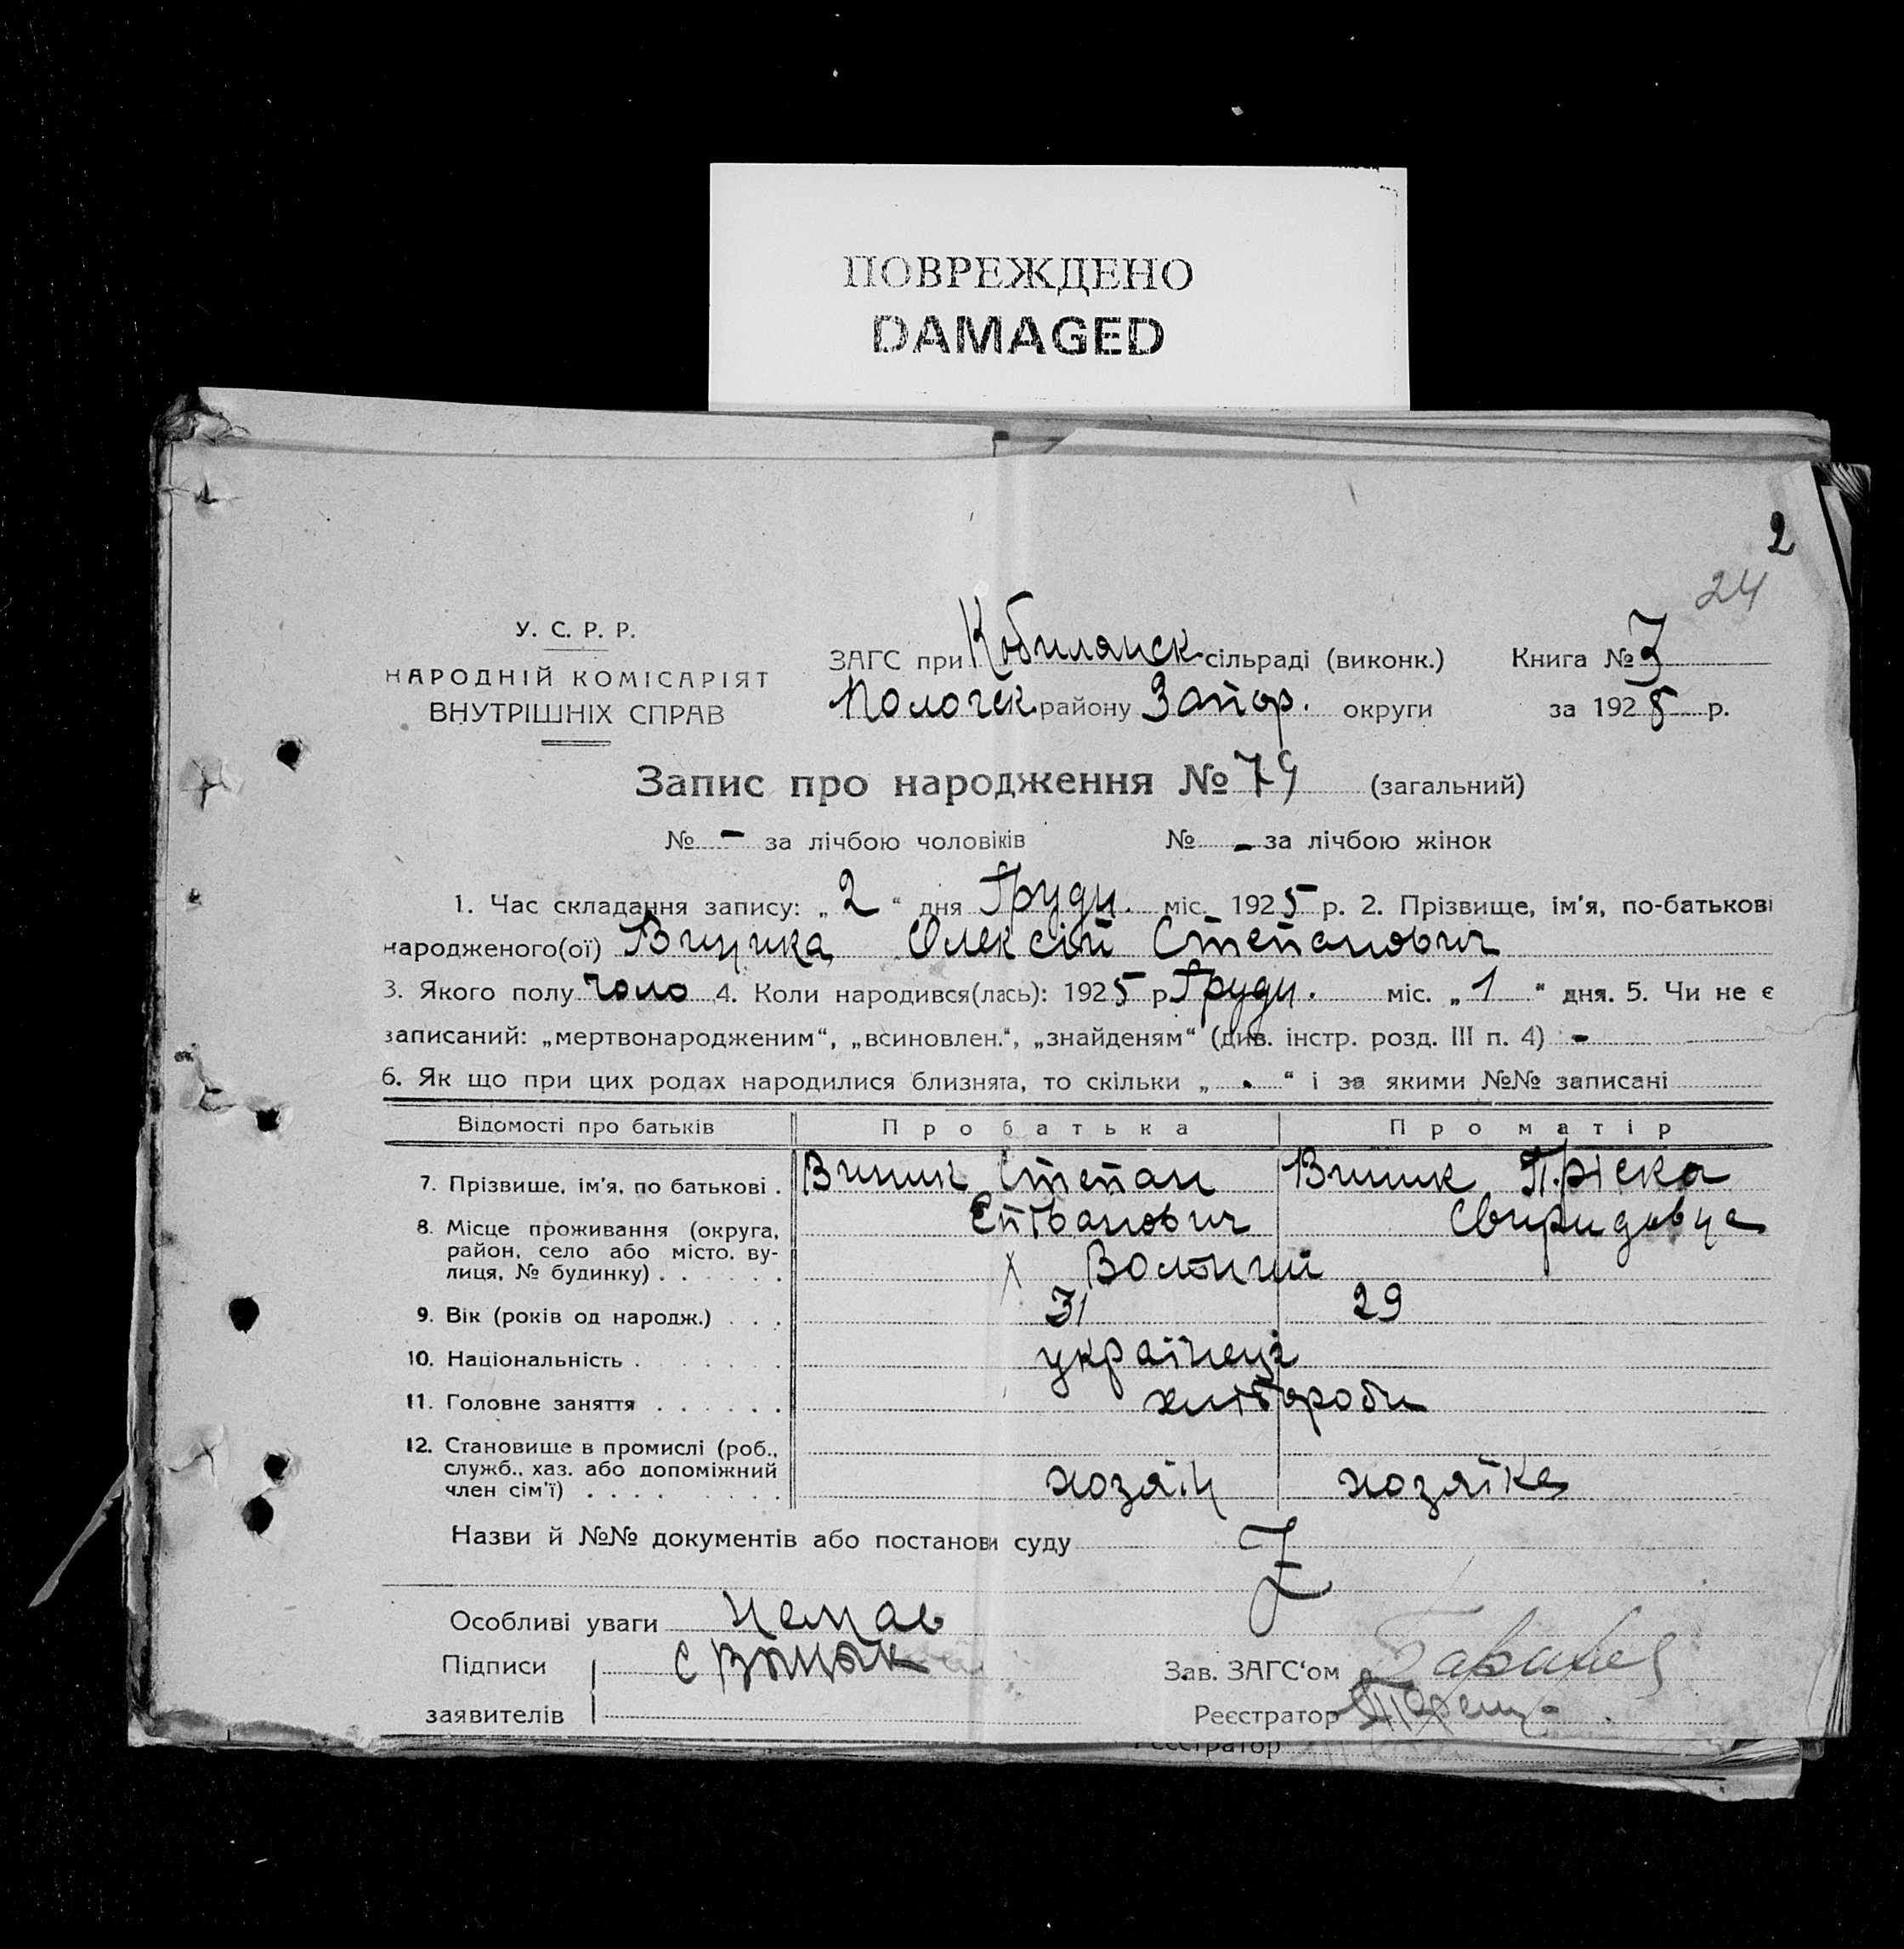 ПОВРЕЖДЕНО
DAMAGED
2
24
У. С. Р. Р.
НАРОДНІЙ КОМІСАРІЯТ
ВНУТРІШНІХ СПРАВ
ЗАГС при Кобилянск. сільраді (виконк.) Книга № 3
Пологск. району Запор. округи за 1925 р.
Запис про народження № 79 (загальний)
№ – за лічбою чоловіків № – за лічбою жінок
1. Час складання запису: „2“ дня Грудн. міс. 1925 р. 2. Прізвище, ім'я, по-батькові
народженого(ої) Винника Олексій Степанович
3. Якого полу чоло 4. Коли народився(лась): 1925 р. Грудн. міс. „1“ дня. 5. Чи не є
записаний: „мертвонародженим“, „всиновлен.“, „знайденям“ (див. інстр. розд. III п. 4) -
6. Як що при цих родах народилися близнята, то скільки „ - “ і за якими №№ записані
Відомості про батьків Про батька Про матір
7. Прізвише, ім'я, по батькові . Винник Степан Винник Пріска
Степанович Свиридовна
8. Місце проживання (округа,
район, село або місто, ву-
лиця, № будинку) . . . . . .
9. Вік (років од народж.) . . . 31 29
10. Національність . . . . . . . українці
11. Головне заняття . . . . . . хлібороби
12. Становище в промислі (роб.,
служб., хаз. або допоміжний
член сім'ї) . . . . . . . . хозяїн хозяїка
Назви й №№ документів або постанови суду
Особливі уваги немає
Підписи С Винык
заявителів
Зав. ЗАГС'ом
Реєстратор
Реєстратор